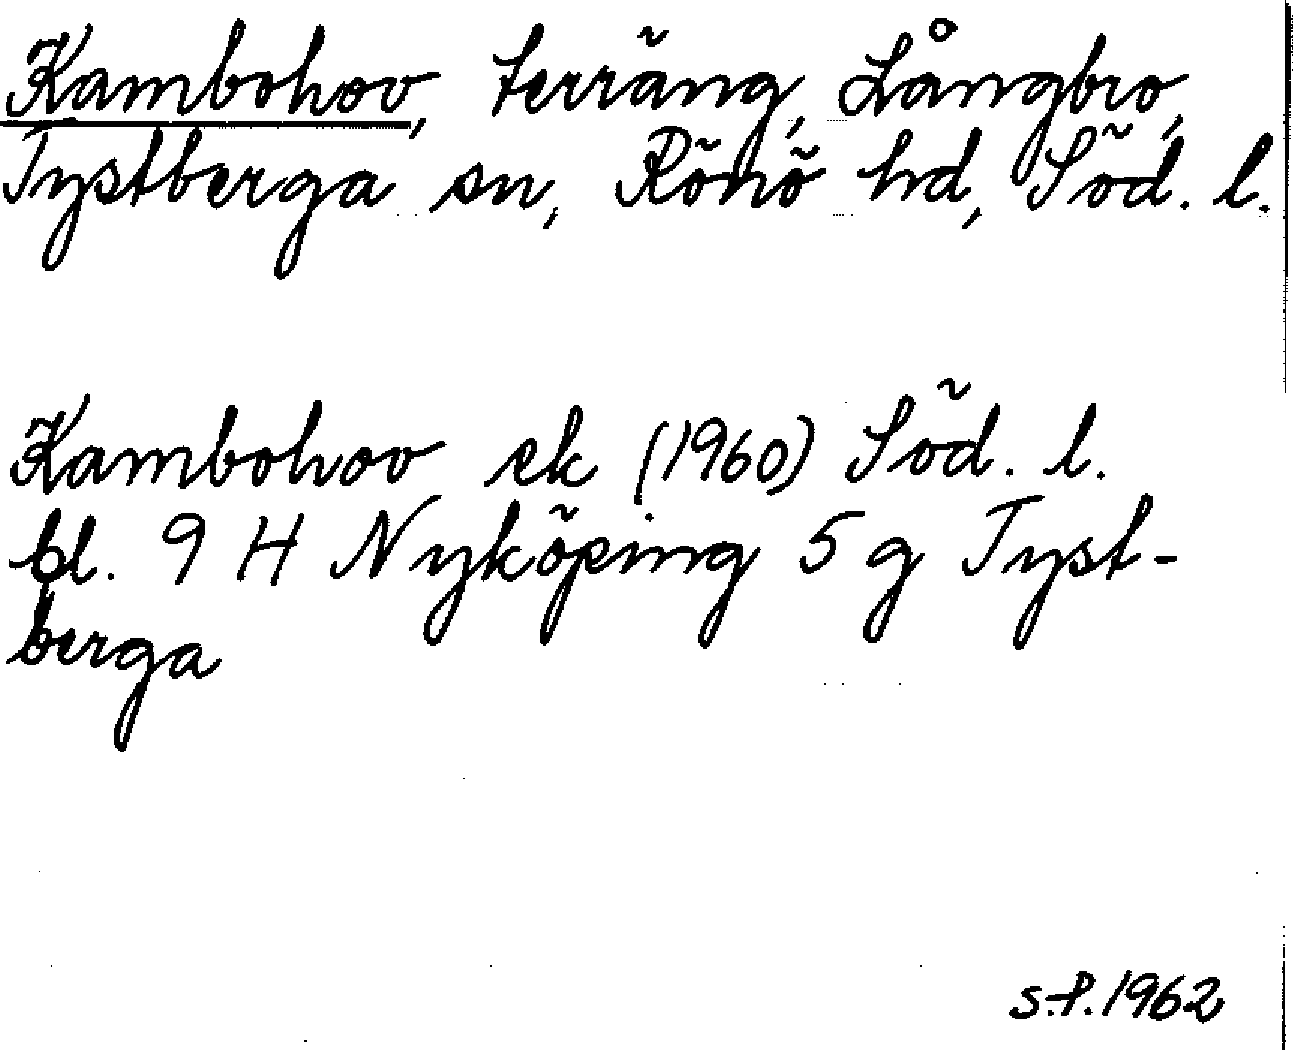 Kambohov, terräng, Långbro,
Tystberga sn, Rönö hd, Söd. l.
Kambohov ek (1960) Söd. l.
bl. 9 H Nyköping 5 g Tyst-
berga
s.f. 1962